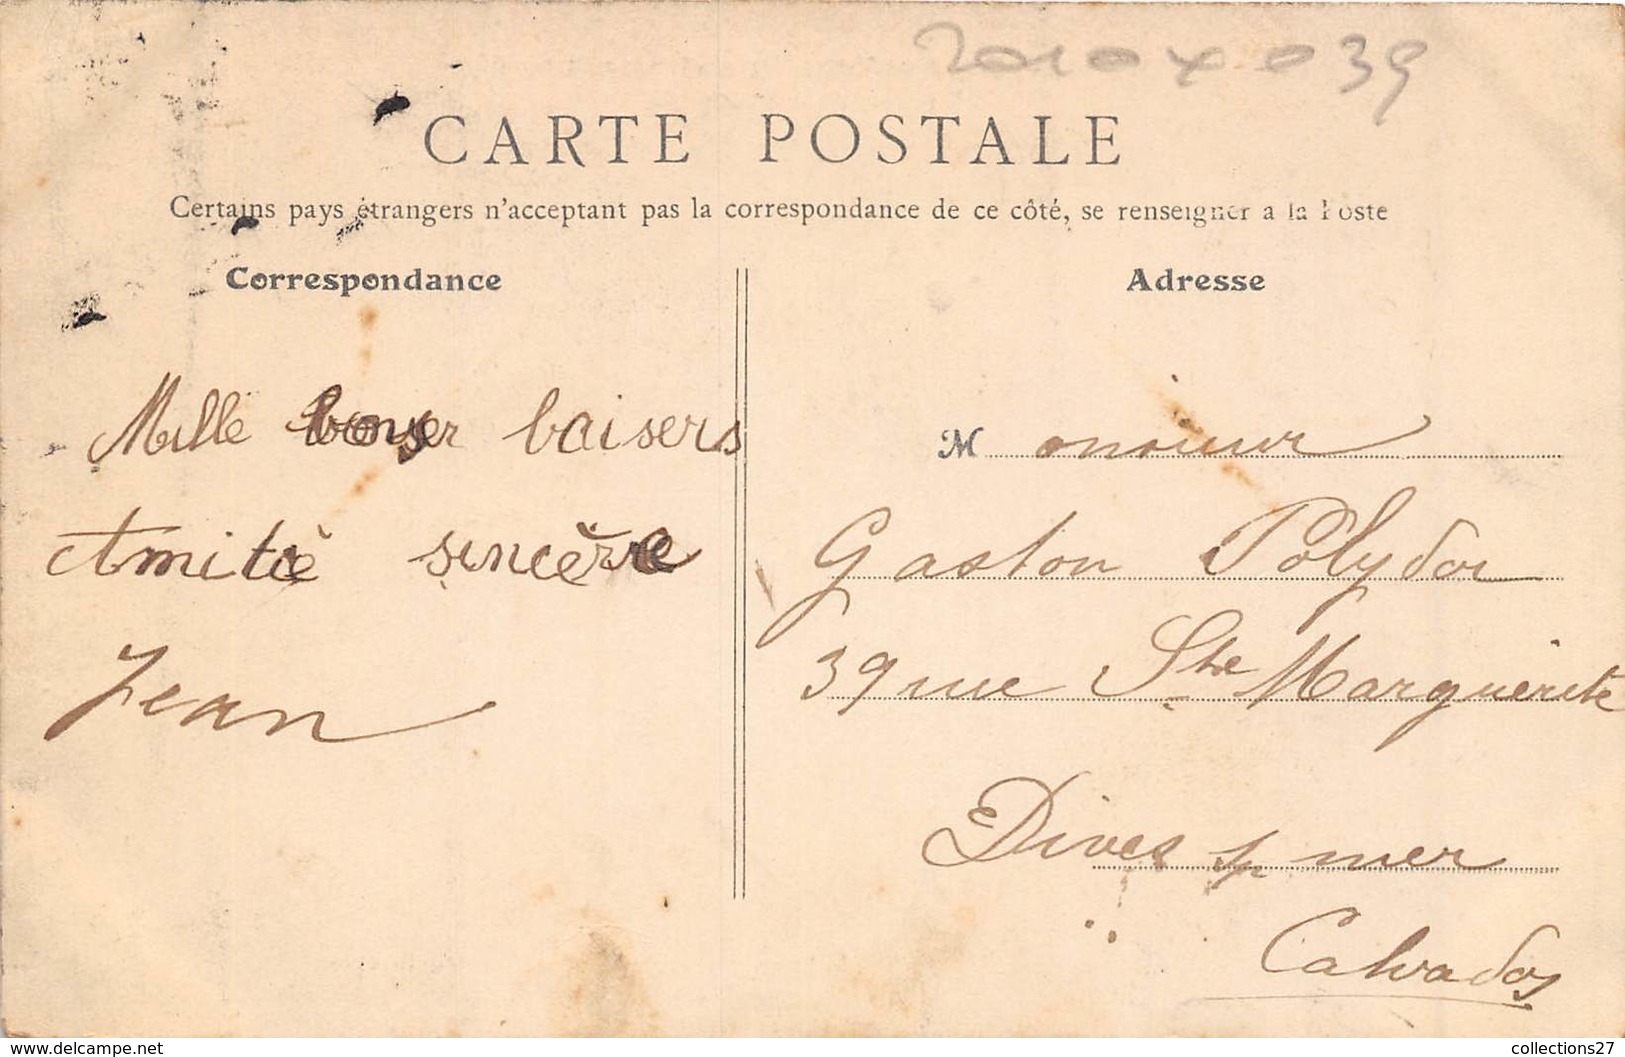 CARTE POSTALE
Certains pays étrangers n'acceptent pas la correspondance de ce côté, se renseigner a la Poste
Correspondance
Mille bons baisers
Amitié sincère
Jean
Adresse
Monsieur
Gaston Polydor
39 rue Ste Marguerite
Dives s/ mer
Calvados
www.delcampe.net
collections27